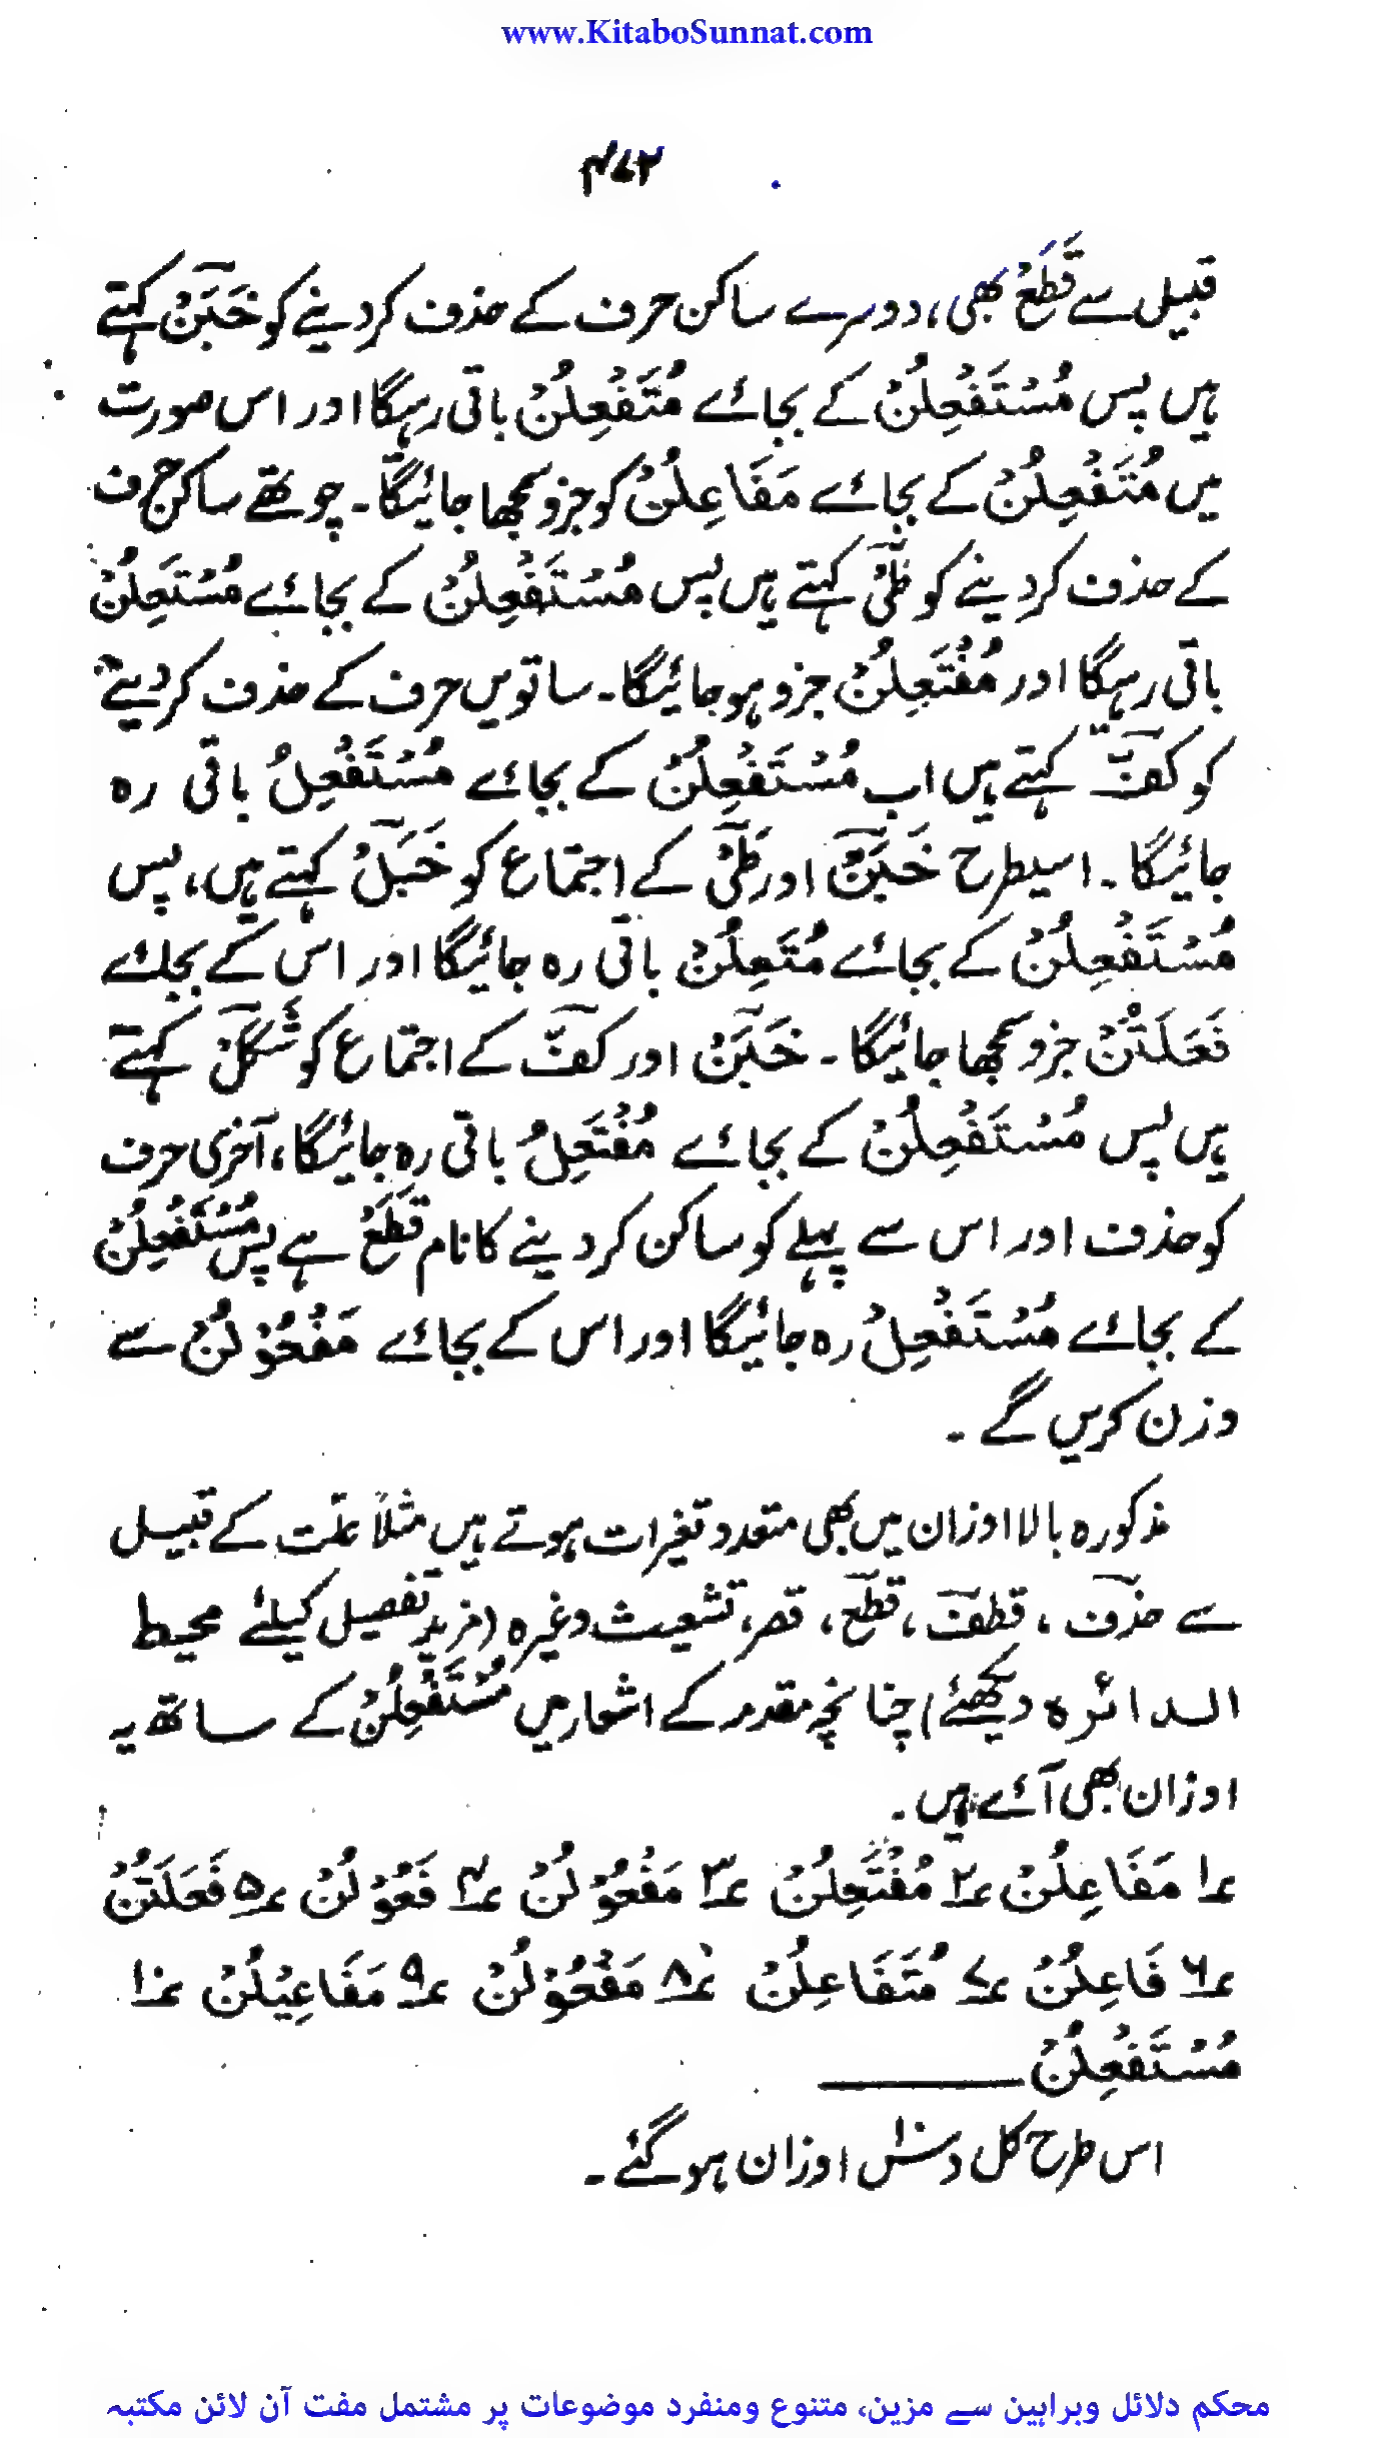 www.KitaboSunnat.com
۴۷۲
قبیل سے قَطَعْ بھی، دوسرے ساکن حرف کے حذف کردینے کو خَبَنْ کہتے
ہیں پس مُسْتَفْعِلُنْ کے بجائے مُتَفْعِلُنْ باقی رہیگا اور اس صورت
میں مُتَفْعِلُنْ کے بجائے مَفَاعِلُنْ کو جزو سمجھا جائیگا۔ چوتھے ساکن حرف
کے حذف کردینے کو طَیّْ کہتے ہیں پس مُسْتَفْعِلُنْ کے بجائے مُسْتَعِلُنْ
باقی رہیگا اور مُفْتَعِلُنْ جزو ہوجائیگا۔ ساتویں حرف کے حذف کردینے
کو کفّ کہتے ہیں اب مُسْتَفْعِلُنْ کے بجائے مُسْتَفْعِلُ باقی رہ
جائیگا۔ اسیطرح خَبَنْ اور طَیّْ کے اجتماع کو خَبَلْ کہتے ہیں، پس
مُسْتَفْعِلُنْ کے بجائے مُتَعِلُنْ باقی رہ جائیگا اور اس کے بجائے
فَعَلَتُنْ جزو سمجھا جائیگا۔ خَبَنْ اور کفّ کے اجتماع کو شَکَلْ کہتے
ہیں پس مُسْتَفْعِلُنْ کے بجائے مُفْتَعِلُ باقی رہ جائیگا، آخری حرف
کو حذف اور اس سے پہلے کو ساکن کردینے کا نام قَطَعْ ہے پس مُسْتَفْعِلُنْ
کے بجائے مُسْتَفْعِلْ رہ جائیگا اور اس کے بجائے مَفْعُوْلُنْ سے
وزن کریں گے۔
مذکورہ بالا اوزان میں بھی متعدد تغیرات ہوتے ہیں مثلاً علّت کے قبیل
سے حذف، قطف، قطع، قصر، تشعیث وغیرہ (مزید تفصیل کیلئے محیط
الدائرہ دیکھئے) چنانچہ مقدمہ کے اشعار میں مُسْتَفْعِلُنْ کے ساتھ یہ
اوزان بھی آئے ہیں۔
؏۱ مَفَاعِلُنْ ؏۲ مُفْتَعِلُنْ ؏۳ مَفْعُوْلُنْ ؏۴ فَعُوْلُنْ ؏۵ فَعَلَتُنْ
؏۶ فَاعِلُنْ ؏۷ مُتَفَاعِلُنْ ؏۸ مَفْعُوْلُنْ ؏۹ مَفَاعِیْلُنْ ؏۱۰
مُسْتَفْعِلُنْ ـــــــــ
اس طرح کل دس۱۰ اوزان ہوگئے۔
محکم دلائل وبراہین سے مزین، متنوع ومنفرد موضوعات پر مشتمل مفت آن لائن مکتبہ